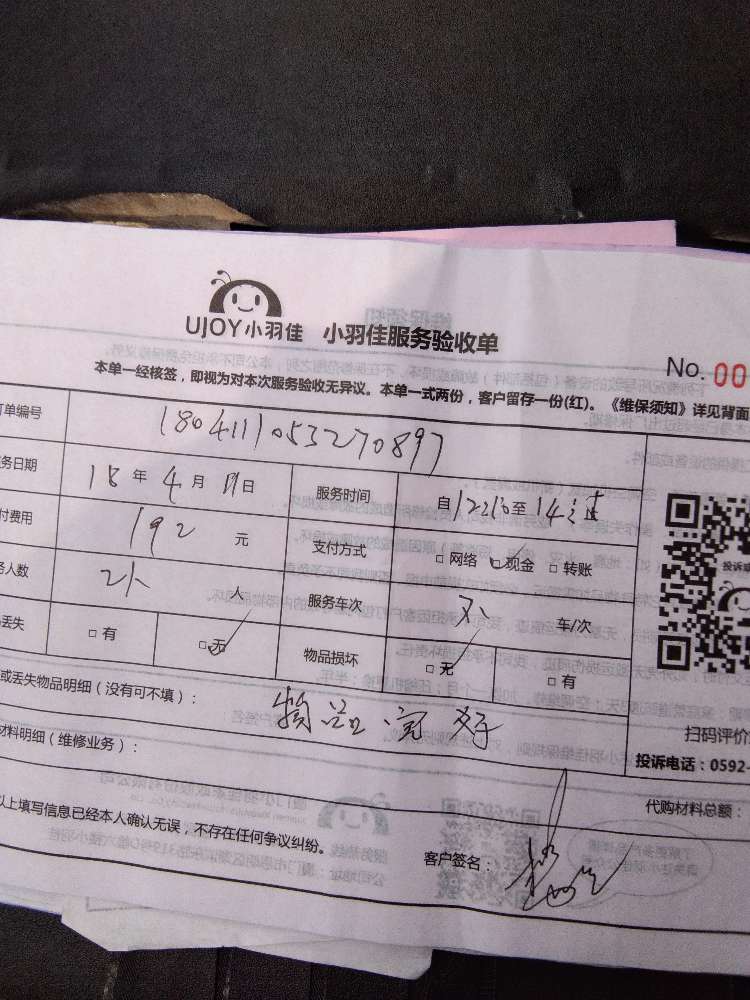 UJOY小羽佳 小羽佳服务验收单
No. 00
本单一经核签，即视为对本次服务验收无异议。本单一式两份，客户留存一份(红)。《维保须知》详见背面
订单编号 1804111053270897
务日期 18年4月11日 服务时间 自 至14
付费用 192 元 支付方式 □网络 □现金 □转账
务人数 2人 人 服务车次 车/次
丢失 □有 □无 物品损坏 □无 □有
或丢失物品明细（没有可不填）： 物品完好
材料明细（维修业务）：
扫码评价
投诉电话：0592-
代购材料总额：
以上填写信息已经本人确认无误，不存在任何争议纠纷。
客户签名：